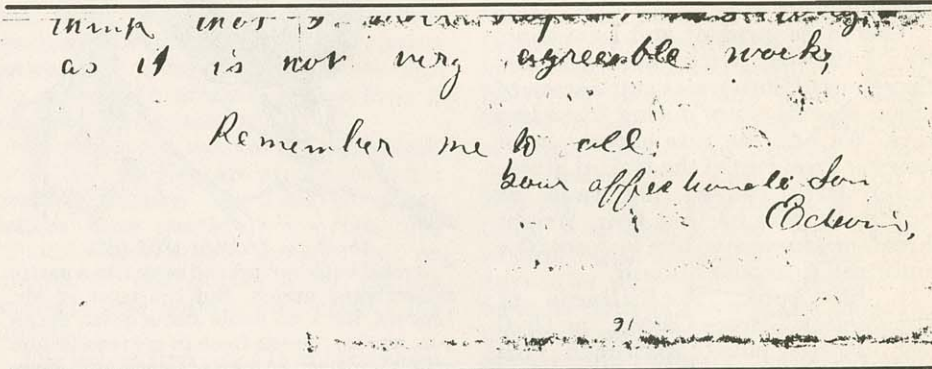 think that
as it is not very agreeable work,
Remember me to all.
Your affectionate Son
Edwin,
16